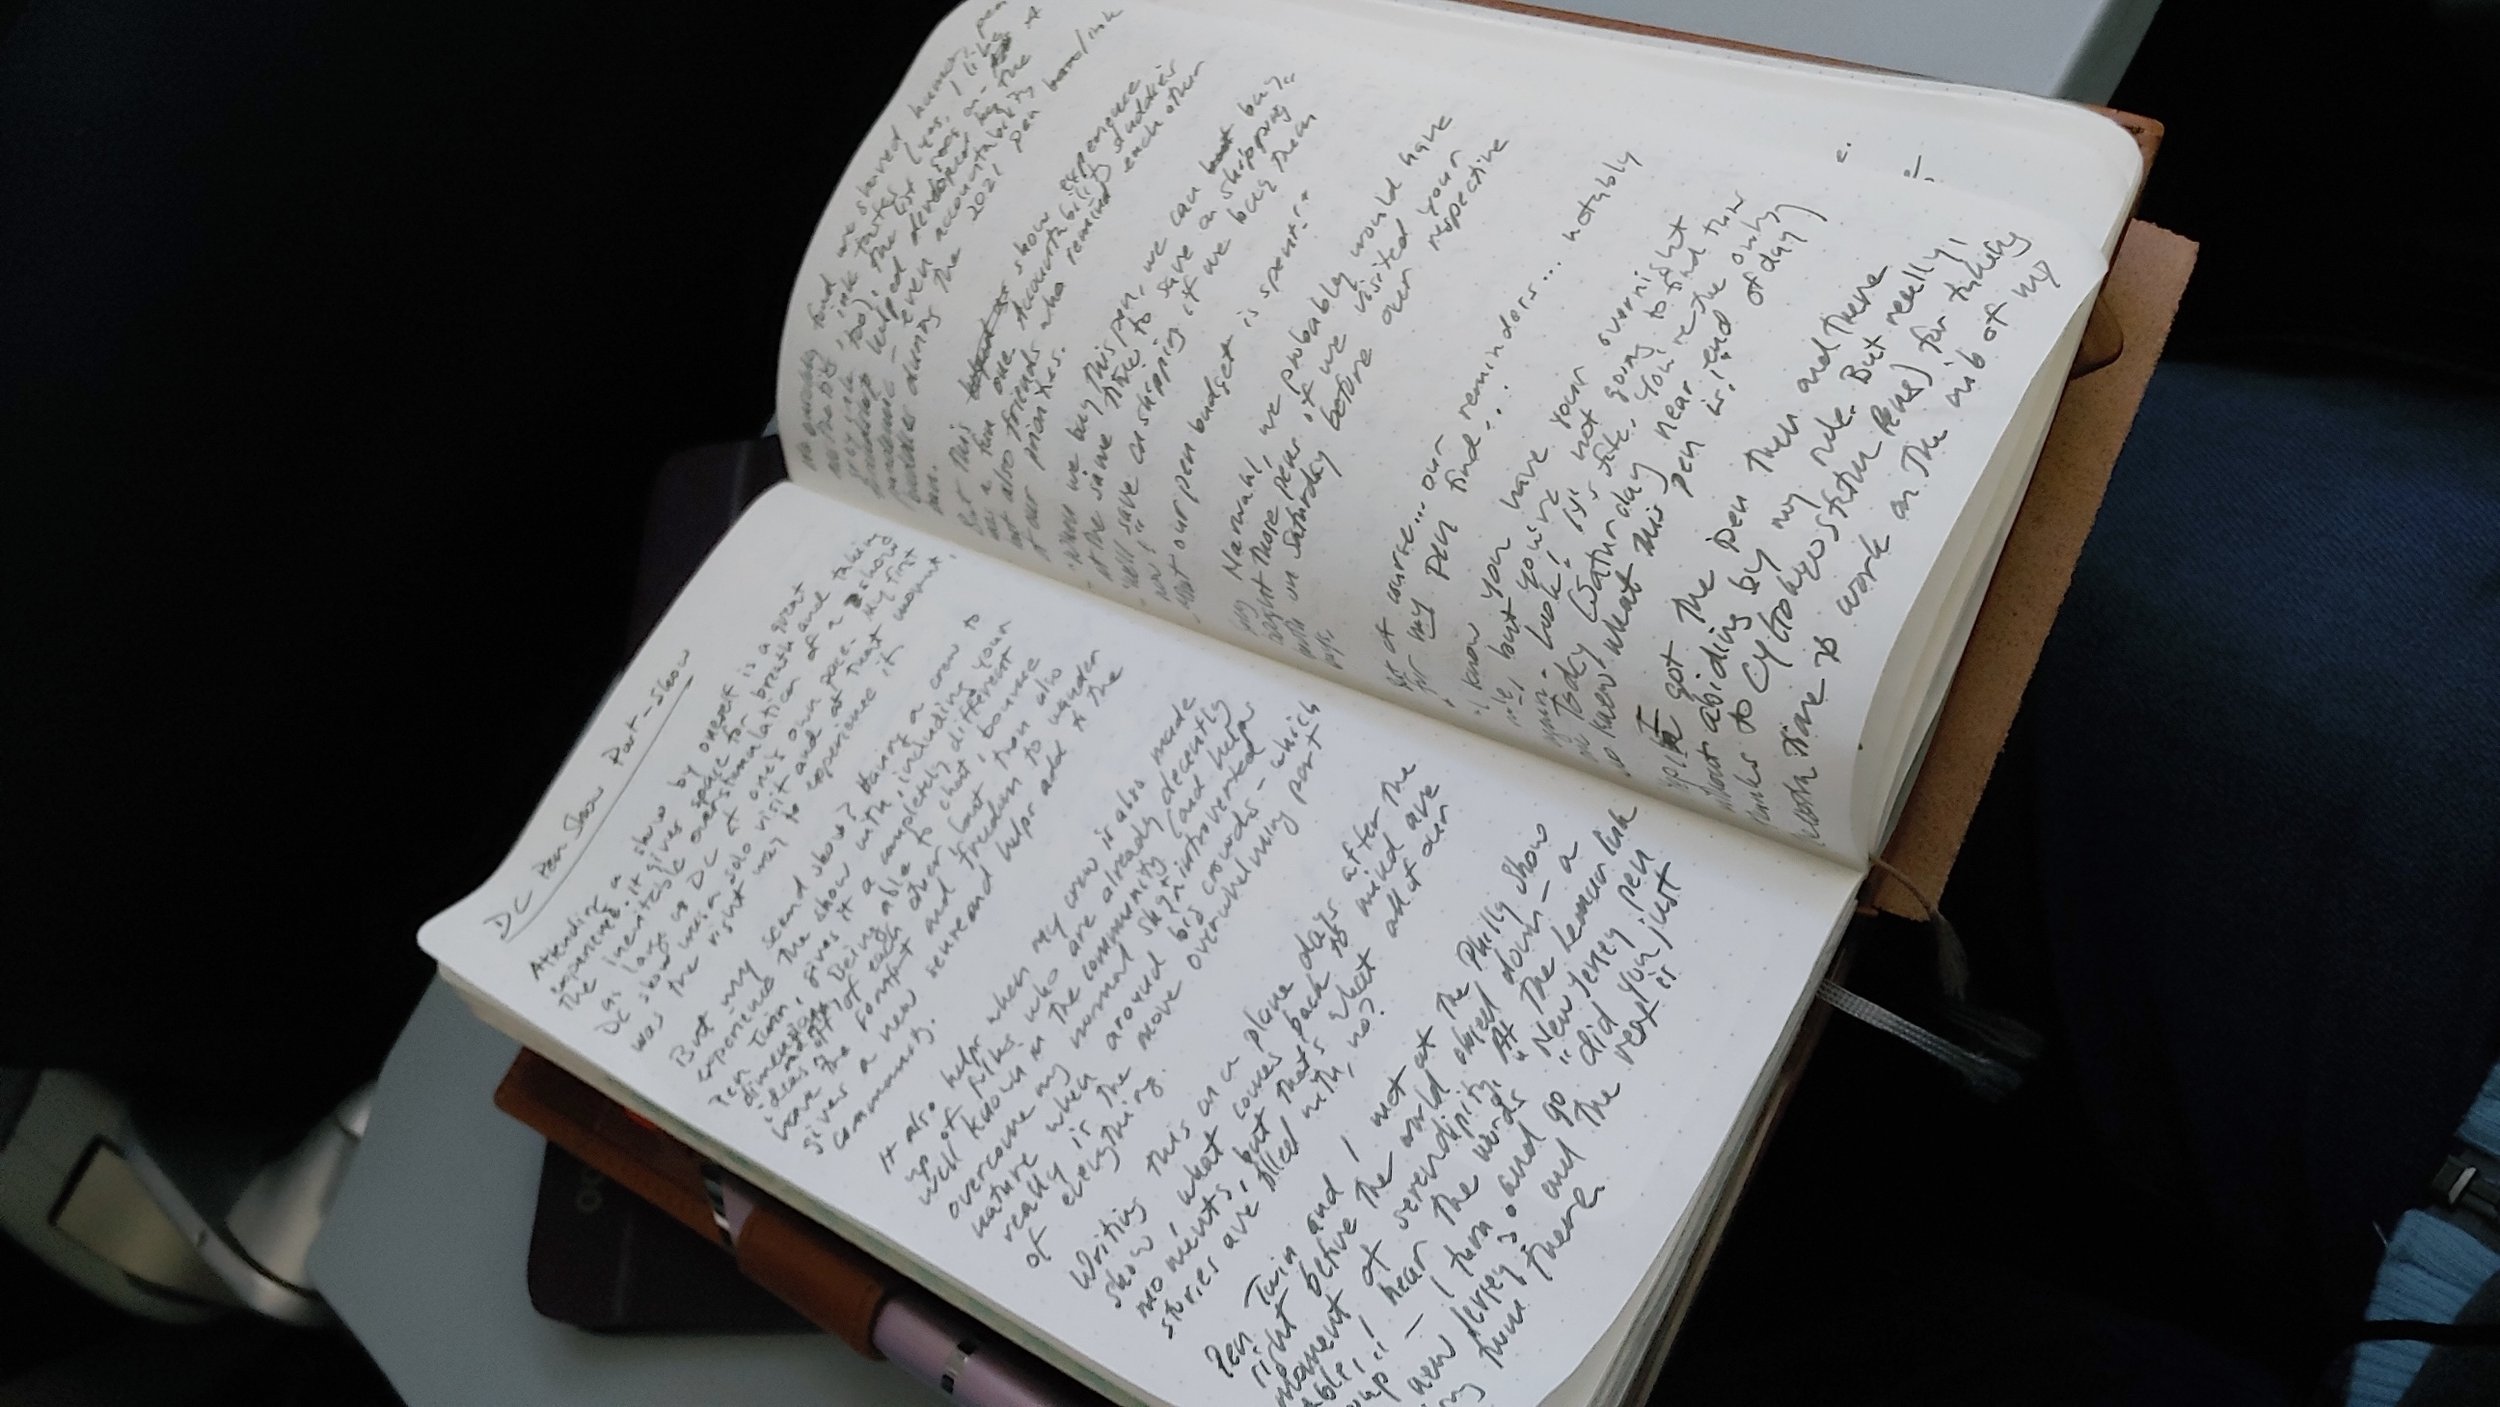 DC Pen Show Post-Show
Attending a show by oneself is a great
experience. it gives space for breath and taking
the inevitable overstimulation of a show
as large as DC at one's own pace. My first
DC show was a solo visit and at that moment,
was the right way to experience it
But my second show? Having a crew to
experience the show with, including your
Pen Twin, gives it a completely different
dimension. Being able to chat, bounce
ideas off of each other, but then also
have the comfort and freedom to wander
gives a new sense and helps add to the
community.
It also helps when my crew is also made
up of folks who are already decently
well known in the community (and helps
overcome my normal shy/introverted
nature when around big crowds - which
really is the more overwhelming part
of everything.
Writing this on a plane days after the
show, what comes back to mind are
moments, but that's what all of our
stories are filled with, no?
Pen Twin and I met at the Philly Show
right before the world shut down - a
moment of serendipity. At the Lemur Ink
table, I hear the words "New Jersey pen
" - I turn and go "did you just
new Jersey" and the rest is
from there.
find we shared humor, pen
ink tastes (yes, I like
too). the list goes on - the
friendship helped developed by the
pandemic - even accountability
buddies during the 2021 pen
pen.
But this show experience
as a fun one. Accountability buddies
but also friends who remind each other
of our priorities.
"When we buy this pen, we can buy
at the same time to save on shipping
"We'll save on shipping if we buy them
now!"
our pen budget is spent.."
Narwhal, we probably would have
those pens if we visited
on Saturday before our respective
of course... our reminders... notably
for my pen find...
"I know you have your overnight
rule, but you're not going to find this
again. Look! It's fate. You're the only
Today (Saturday near end of day)
so know what this pen is!"
I got the pen then and there
without abiding by my rule. But really,
thanks to Cy (Tokyo Station Pens) for taking
worth time to work on the nib of my